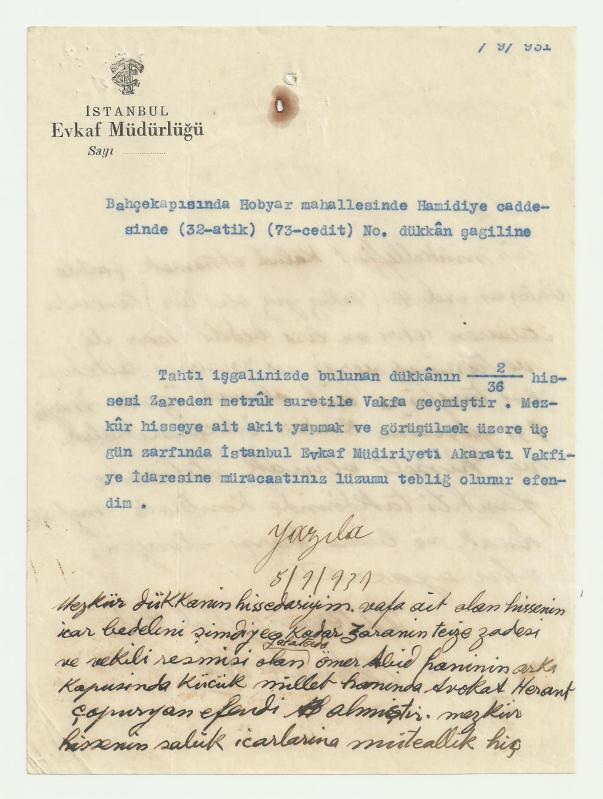 / 9/ 931
İSTANBUL
Evkaf Müdürlüğü
Sayı
Bahçekapısında Hobyar mahallesinde Hamidiye cadde-
sinde (32-atik) (73-cedit) No. dükkân şagiline
Tahtı işgalinizde bulunan dükkânın 2/36 his-
sesi Zareden metrûk suretile Vakfa geçmiştir . Mez-
kûr hisseye ait akit yapmak ve görüşülmek üzere üç
gün zarfında İstanbul Evkaf Müdiriyeti Akaratı Vakfi-
ye İdaresine müracaatınız lüzumu tebliğ olunur efen-
dim .
Yazıla
5/9/931
Mezkür dükkanin hissedariyim. vafa ait olan hissenin
icar bedelini şimdiye kadar Zaranin teize zadesi
ve vekili resmisi olan Galatada ömer Abid haninin arka
kapusinda küçük millet haninda Avokat Herant
Çopuryan efendi almiştir. mezkür
hissenin sabık icarlarina müteallik hiç